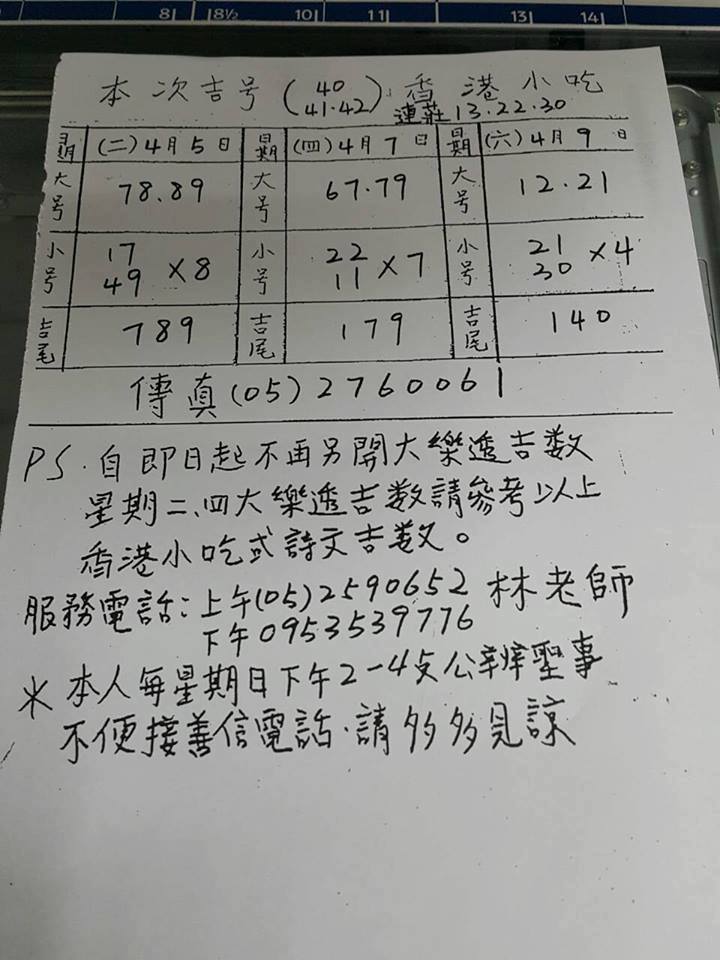 8 8½ 10 11 13 14
本次吉号(40 41·42)香港小吃
連莊13·22·30
星期 (二)4月5日 星期 (四)4月7日 星期 (六)4月9日
大号 78.89 大号 67.79 大号 12.21
小号 17 49 ×8 小号 22 11 ×7 小号 21 30 ×4
吉尾 789 吉尾 179 吉尾 140
傳真(05)2760061
PS.自即日起不再另開大樂透吉数
星期二、四大樂透吉数請參考以上
香港小吃或詩文吉数。
服務電話:上午(05)2590652 林老師
下午0953539776
*本人每星期日下午2-4点公辦聖事
不便接善信電話.請多多見諒